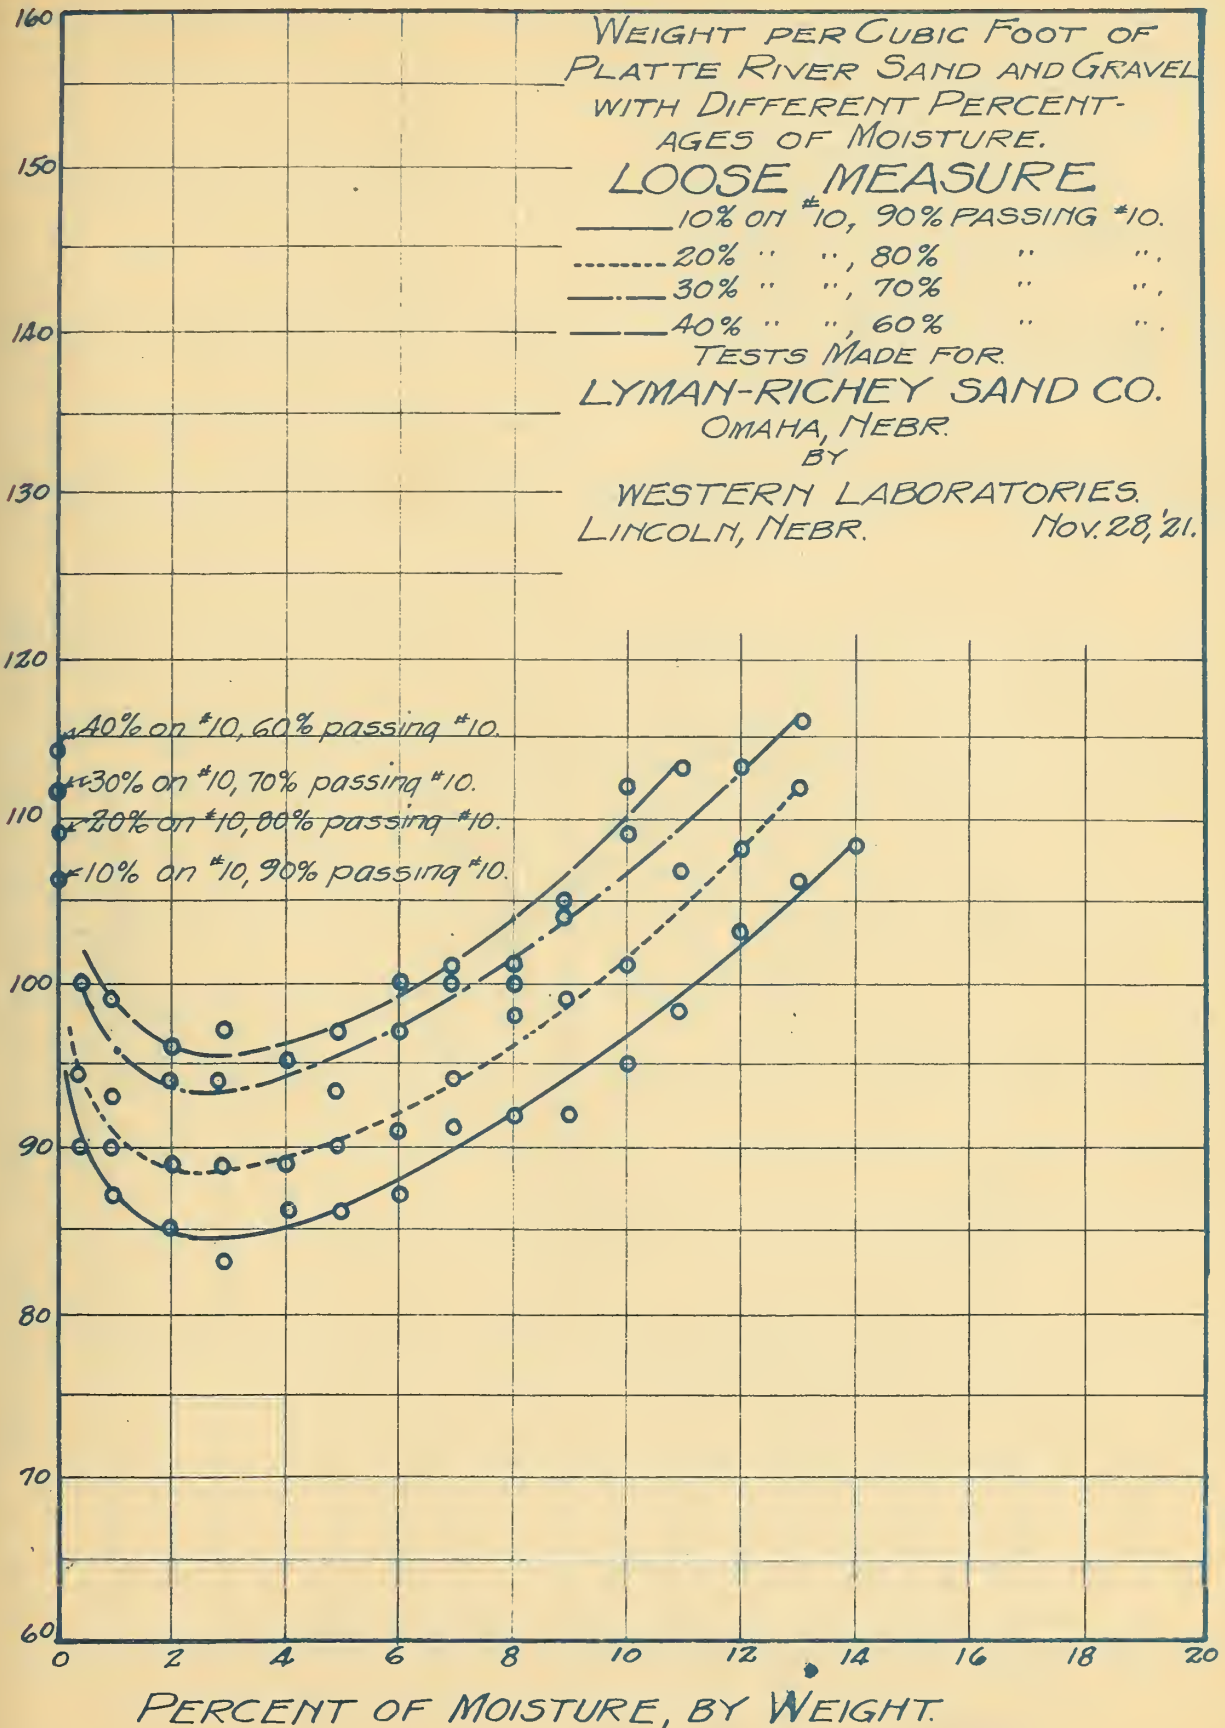 WEIGHT PER CUBIC FOOT OF
PLATTE RIVER SAND AND GRAVEL
WITH DIFFERENT PERCENT-
AGES OF MOISTURE.
LOOSE MEASURE
10% ON #10, 90% PASSING #10.
20% " ", 80% " ".
30% " ", 70% " ".
40% " ", 60% " ".
TESTS MADE FOR
LYMAN-RICHEY SAND CO.
OMAHA, NEBR.
BY
WESTERN LABORATORIES.
LINCOLN, NEBR. NOV. 28, '21.
160
150
140
130
120
40% on #10, 60% passing #10.
30% on #10, 70% passing #10.
110
20% on #10, 80% passing #10.
10% on #10, 90% passing #10.
100
90
80
70
60
0 2 4 6 8 10 12 14 16 18 20
PERCENT OF MOISTURE, BY WEIGHT.